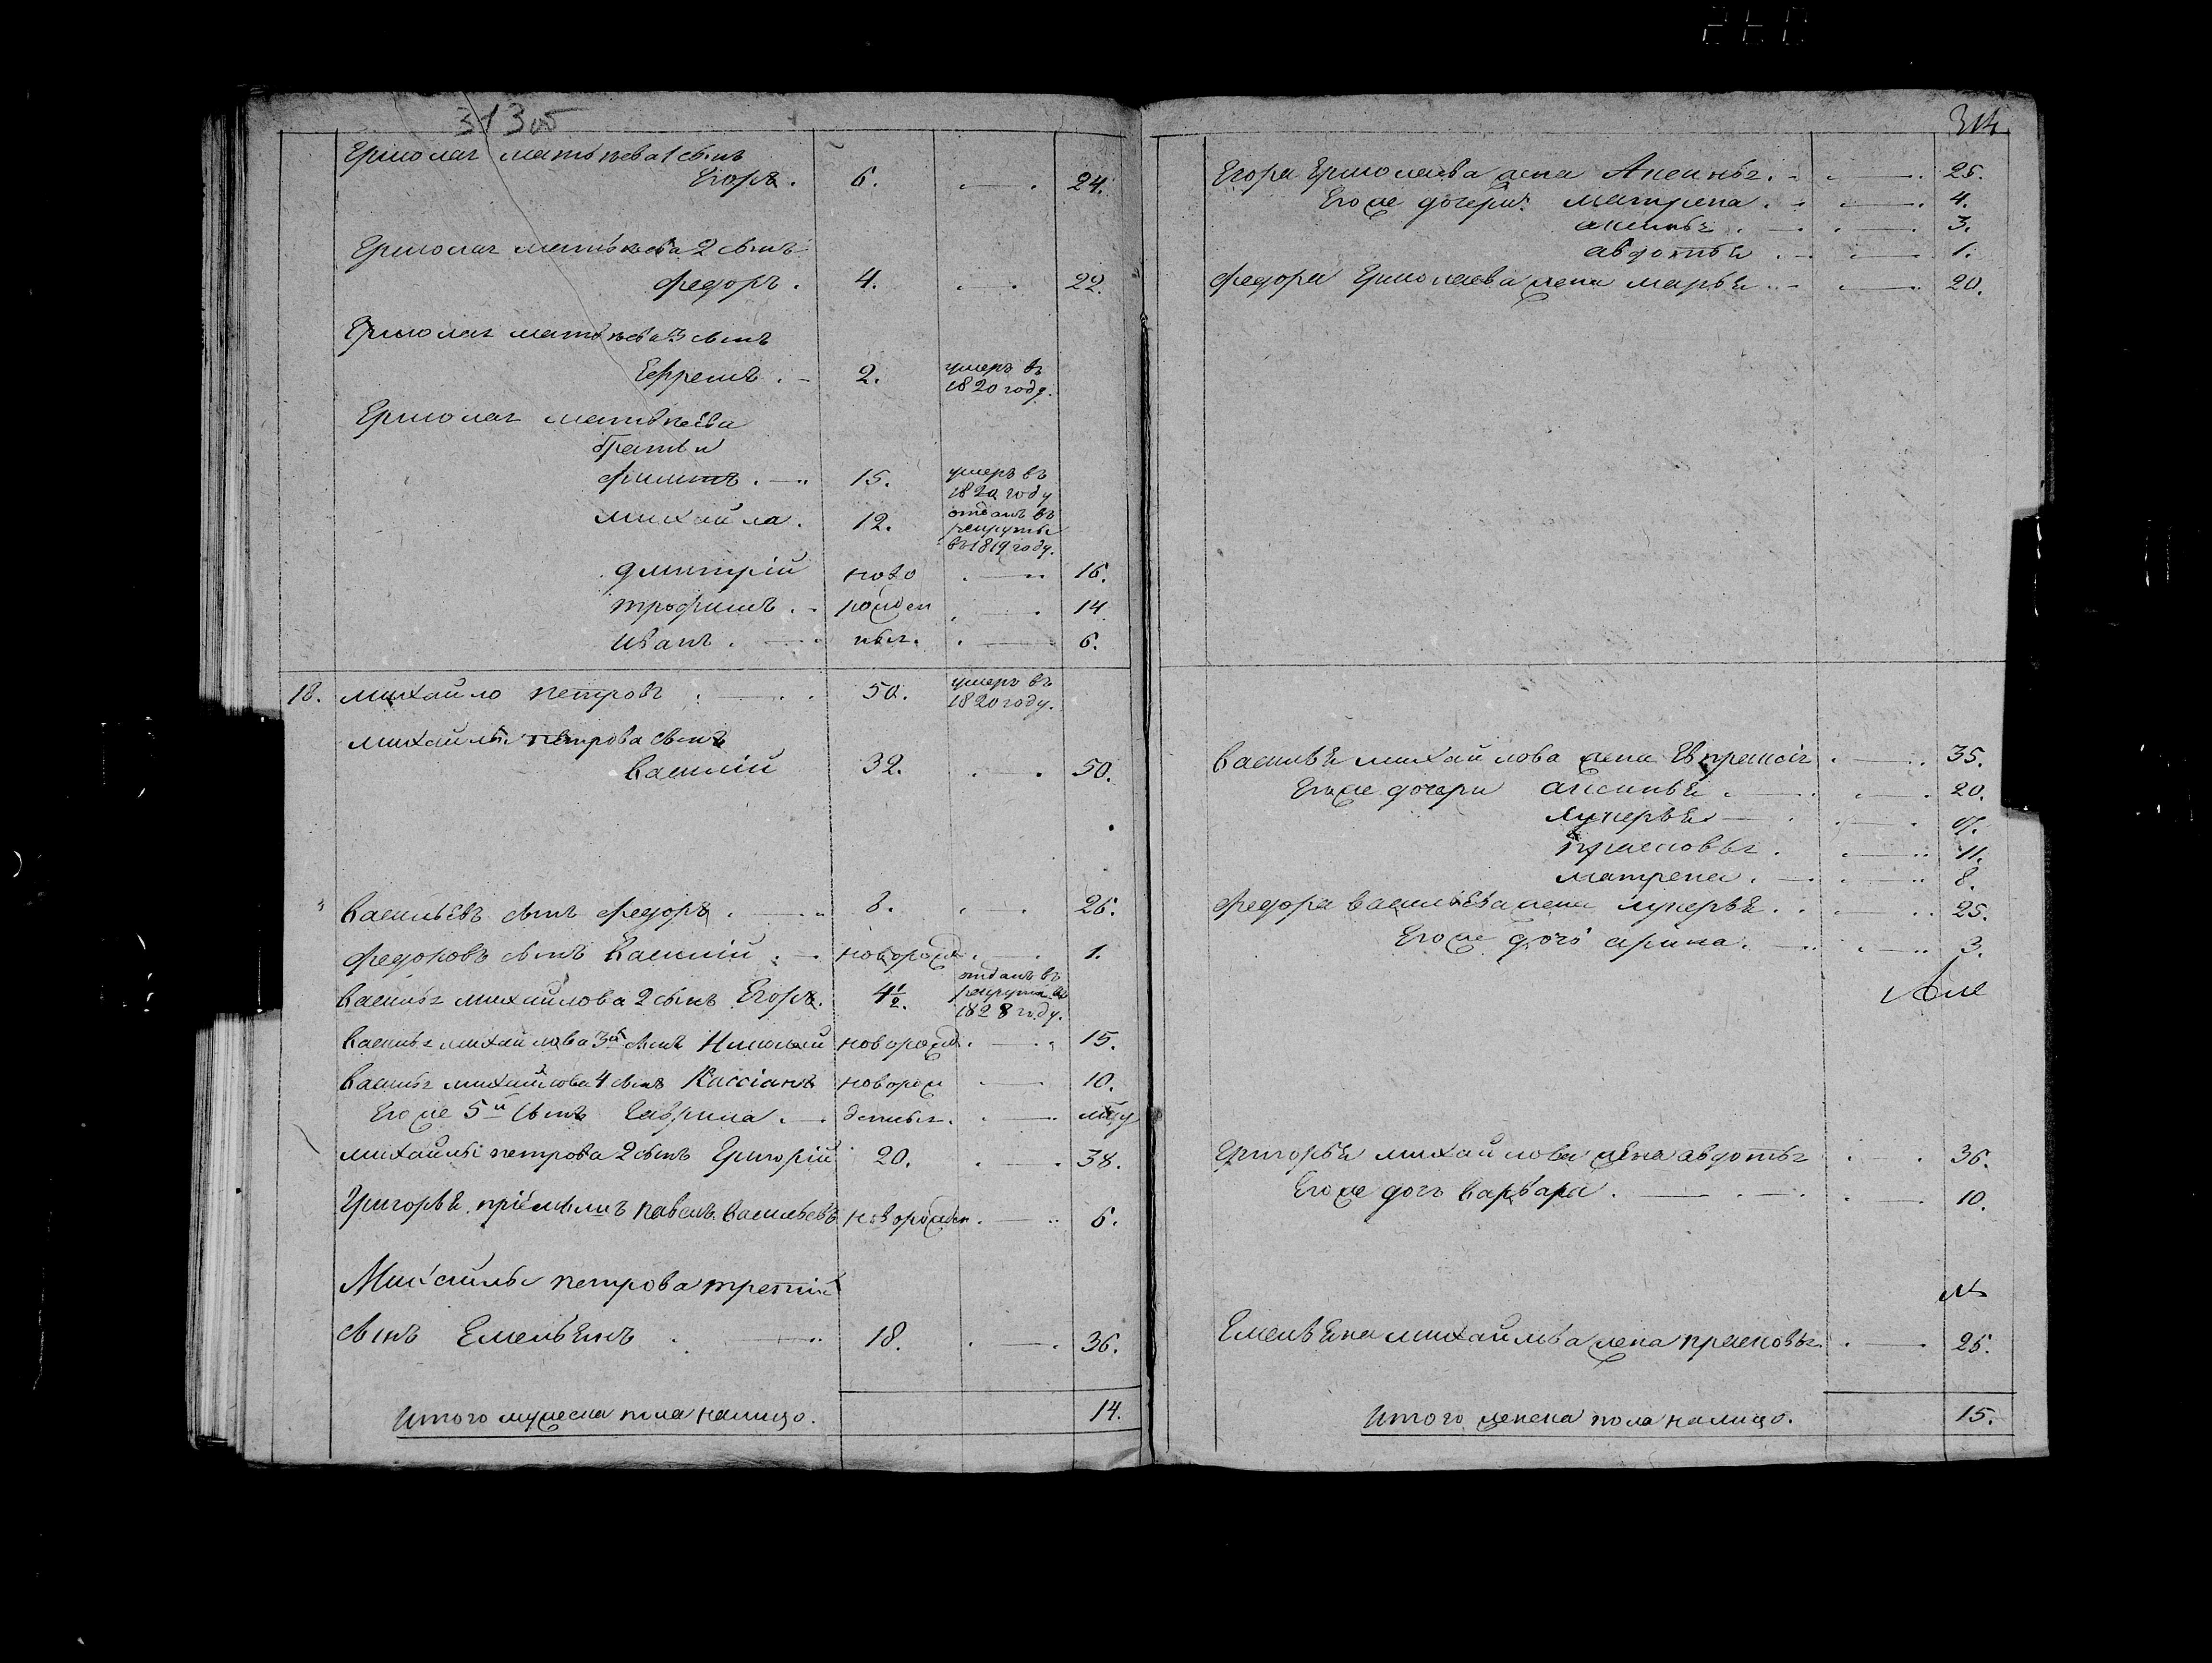 313 об
Ермолая матвѣева 1 сынъ
Егоръ. 6. 24.
Ермолая матвѣева 2 сынъ
федоръ. 4. 22.
Ермолая матвѣева 3 сынъ
Ефремъ. 2. умеръ въ
1820 году.
Ермолая матвѣева
братьи
филипъ. 15. умеръ въ
1820 году
михайла. 12. отданъ въ
рекруты
въ 1819 году.
дмитрій ново 16.
трофимъ. рожден 14
иванъ. ныя. 6.
18. михайло петровъ 50. умеръ въ
1820 году.
михайлы петрова сынъ
василій 32. 50.
васильевъ сынъ федоръ. 8. 26.
федоровъ сынъ василій. новорожд. 1.
василья михайлова 2 сынъ Егоръ. 4½. отданъ въ
рекруты въ
1828 году.
василья михайлова 3й сынъ Николай новорожд. 15.
василья михайлова 4 сынъ Кассіянъ новорож 10.
Его же 5й сынъ Гаврила. денныя.
михайлы петрова 2 сынъ Григорій 20. 38.
Григорья пріемышъ павелъ васильевъ новорожден. 6.
Михайлы петрова третій
сынъ Емельянъ 18. 36.
Итого мужеска пола налицо. 14.
314
Егора Ермолаева жена Аксинья. 25.
Его же дочери: матрена. 4.
аксинья. 3.
авдотья. 1.
федора Ермолаева жена марья. 20.
василья михайлова жена Евпраксія 35.
Его же дочери аксинья. 20.
лукерья
прасковья. 11.
матрена. 8.
федора васильева жена лукерья. 25.
Его же дочь арина. 3.
Григорья михайлова жена авдотья 36.
Его же дочь варвара. 10.
Емельяна михайлова жена прасковья. 26.
Итого женска пола налицо. 15.